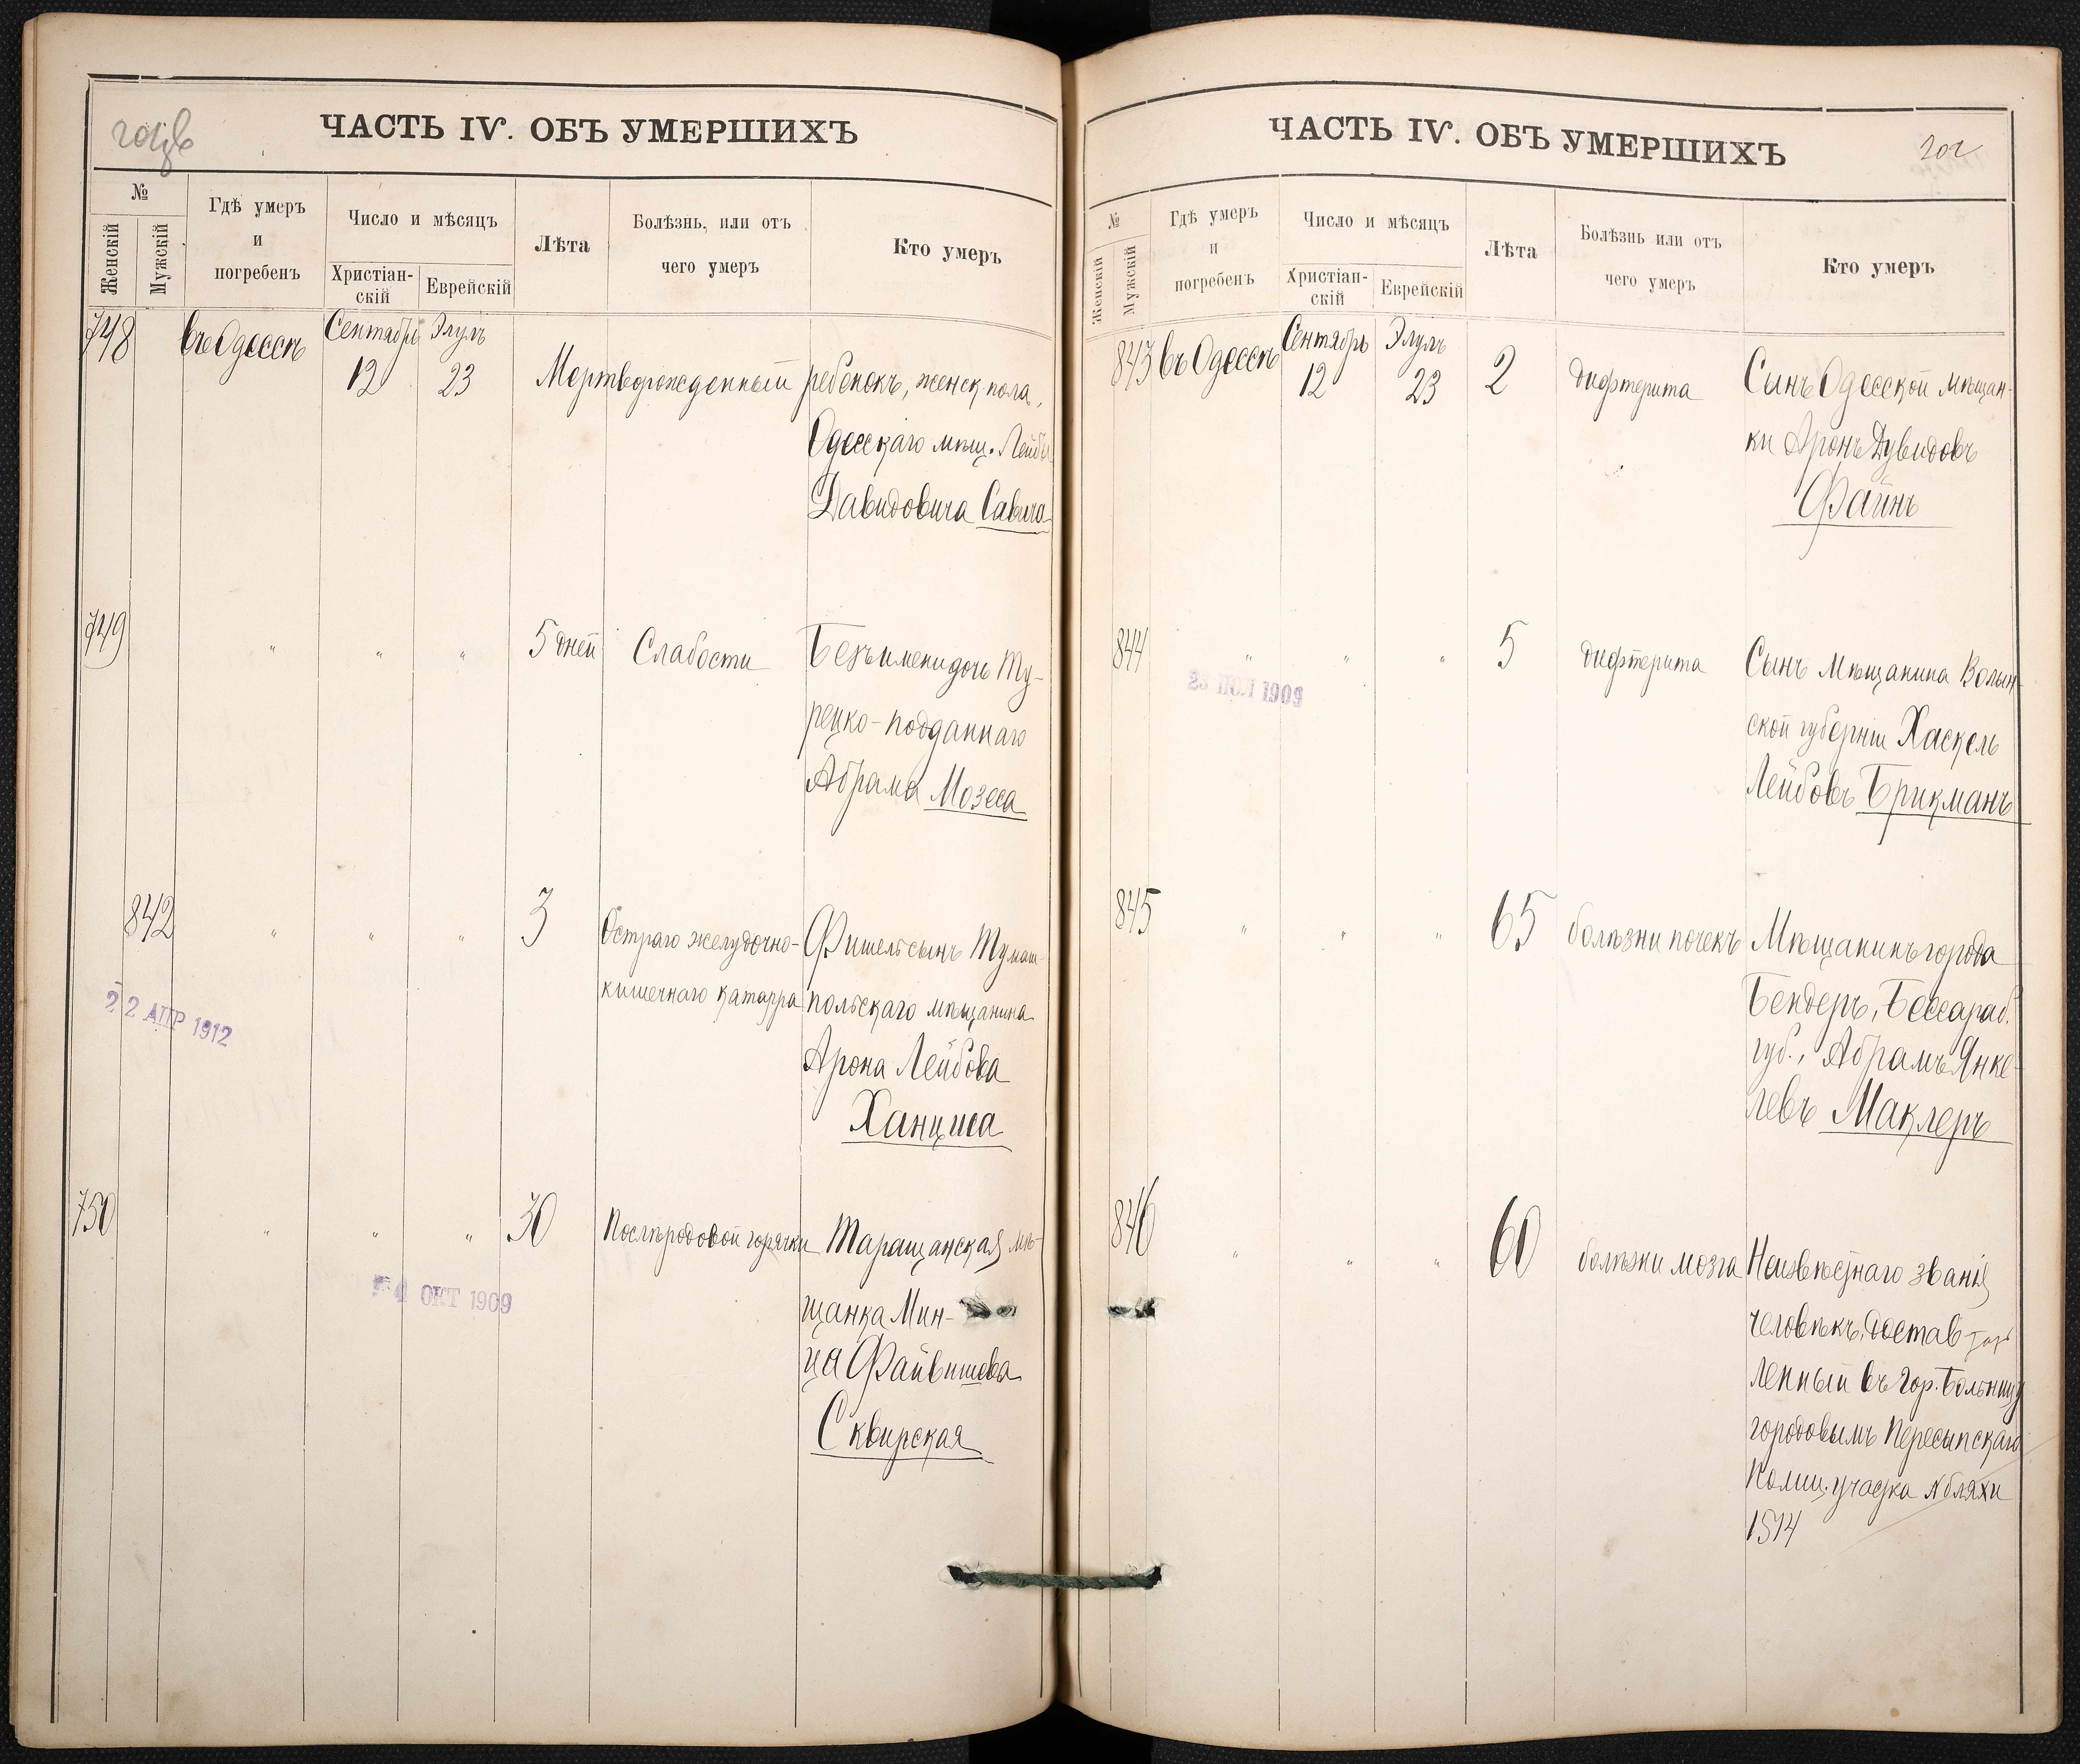 ЧАСТЬ IV. ОБЪ УМЕРШИХЪ
№
Женскій
Мужскій
Гдѣ умеръ
и
погребенъ
Число и мѣсяцъ
Христіан-
скій
Еврейскій
Лѣта
Болѣзнь, или отъ
чего умеръ
Кто умеръ
748
въ Одессѣ
Сентябрь
12
Элулъ
23
Мертворожденный ребенокъ, женск. пола,
Одесскаго мѣщ. Лейбы
Давидовича Савича
749
"
"
"
5 дней
Слабости
Безъ имени дочь Ту-
рецко-подданнаго
Абрама Мозеса
842
"
"
"
3
Остраго желудочно-
кишечнаго катарра
Фишель сынъ Тумаш-
польскаго мѣщанина
Арона Лейбова
Ханциса
22 АПР 1912
750
"
"
"
30
Послѣродовой горячки
Таращанская мѣ-
щанка Мин-
ца Файвишева
Сквирская
4 ОКТ 1909
ЧАСТЬ IV. ОБЪ УМЕРШИХЪ
202
№
Женскій
Мужскій
Гдѣ умеръ
и
погребенъ
Число и мѣсяцъ
Христіан-
скій
Еврейскій
Лѣта
Болѣзнь или отъ
чего умеръ
Кто умеръ
843
въ Одессѣ
Сентябрь
12
Элулъ
23
2
дифтерита
Сынъ Одесской мѣщан-
ки Аронъ Дувидовъ
Файнъ
844
"
"
"
5
дифтерита
Сынъ мѣщанина Волын-
ской губерніи Хаскель
Лейбовъ Брикманъ
1909
845
"
"
"
65
болѣзни почекъ
Мѣщанинъ города
Бендеръ, Бессараб.
губ., Абрамъ Янке-
левъ Маклеръ
846
"
"
"
60
болѣзни мозга
Неизвѣстнаго званія
человѣкъ, достав
ленный въ Гор. Больницу
городовымъ Пересыпскаго
Полиц. участка № бляхи
1514